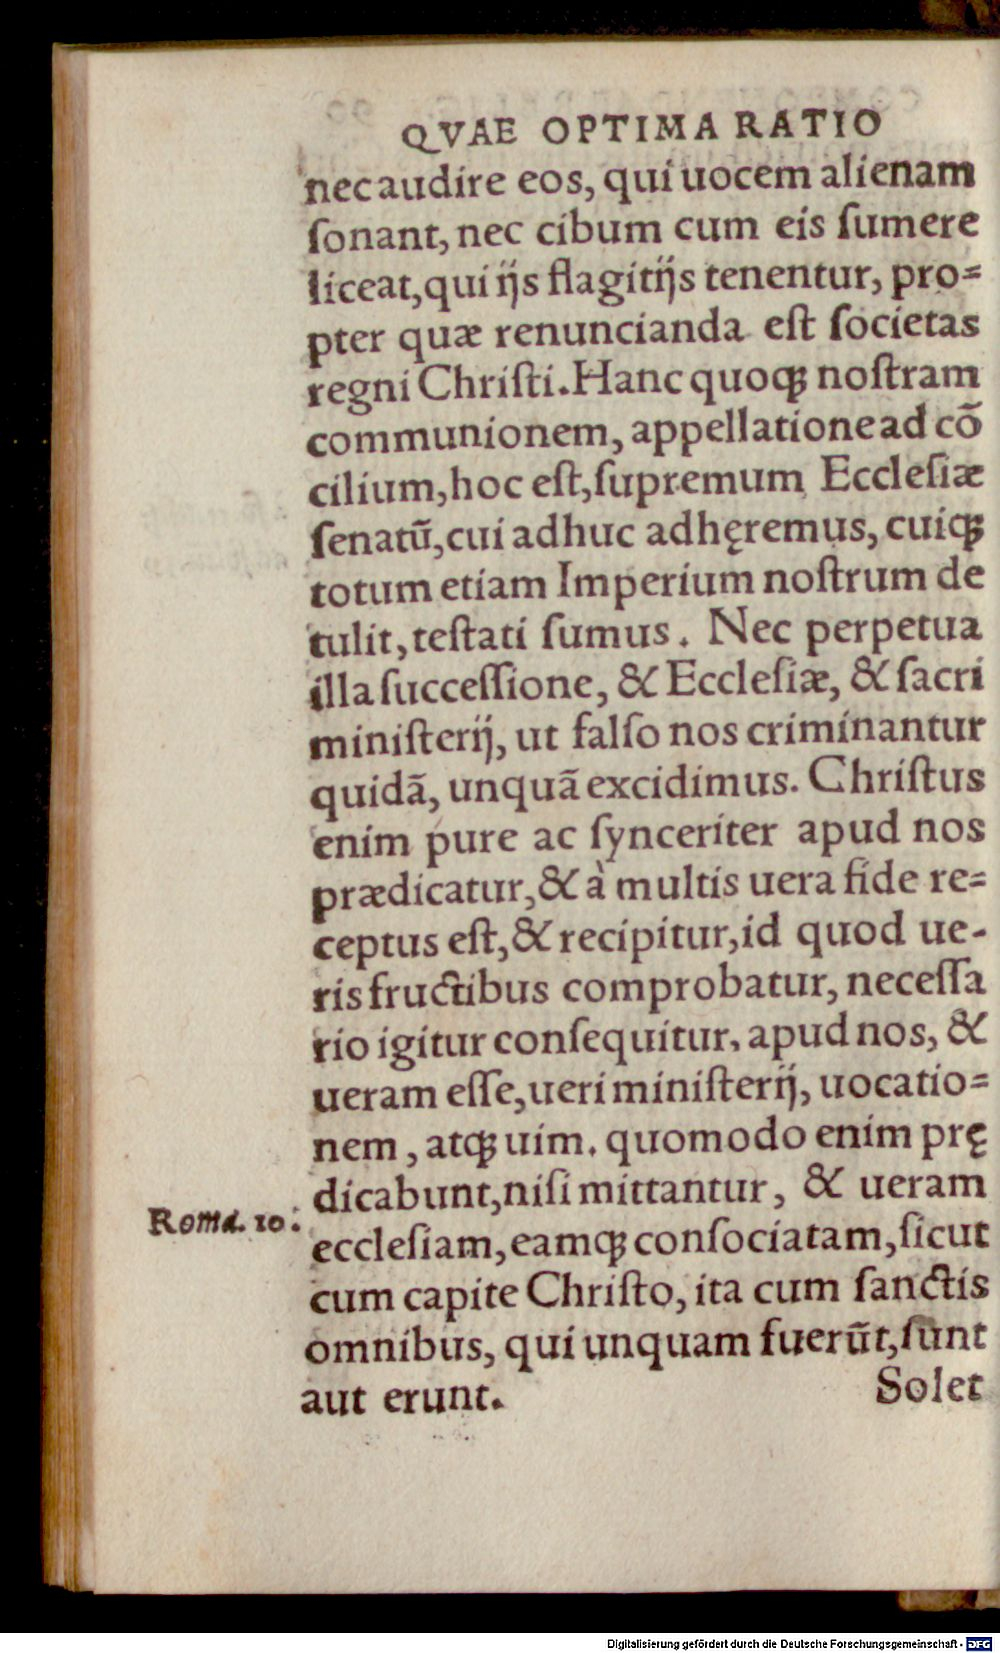 QVAE OPTIMA RATIO
nec audire eos, qui uocem alienam
ſonant, nec cibum cum eis ſumere
liceat, qui ijs flagitijs tenentur, pro=
pter quæ renuncianda eſt ſocietas
regni Chriſti. Hanc quoqꝫ noſtram
communionem, appellatione ad cõ
cilium, hoc eſt, ſupremum Eccleſiæ
ſenatũ, cui adhuc adhęremus, cuiqꝫ
totum etiam Imperium noſtrum de
tulit, teſtati ſumus. Nec perpetua
illa ſucceſſione, & Eccleſiæ, & ſacri
miniſterij, ut falſo nos criminantur
quidã, unquã excidimus. Chriſtus
enim pure ac ſynceriter apud nos
prædicatur, & à multis uera fide re=
ceptus eſt, & recipitur, id quod ue-
ris fructibus comprobatur, neceſſa
rio igitur conſequitur, apud nos, &
ueram eſſe, ueri miniſterij, uocatio=
nem, atqꝫ uim. quomodo enim prę
dicabunt, niſi mittantur, & ueram
Roma. 10.
eccleſiam, eamqꝫ conſociatam, ſicut
cum capite Chriſto, ita cum ſanctis
omnibus, qui unquam fuerũt, ſunt
aut erunt.
Solet
Digitalisierung gefördert durch die Deutsche Forschungsgemeinschaft - DFG